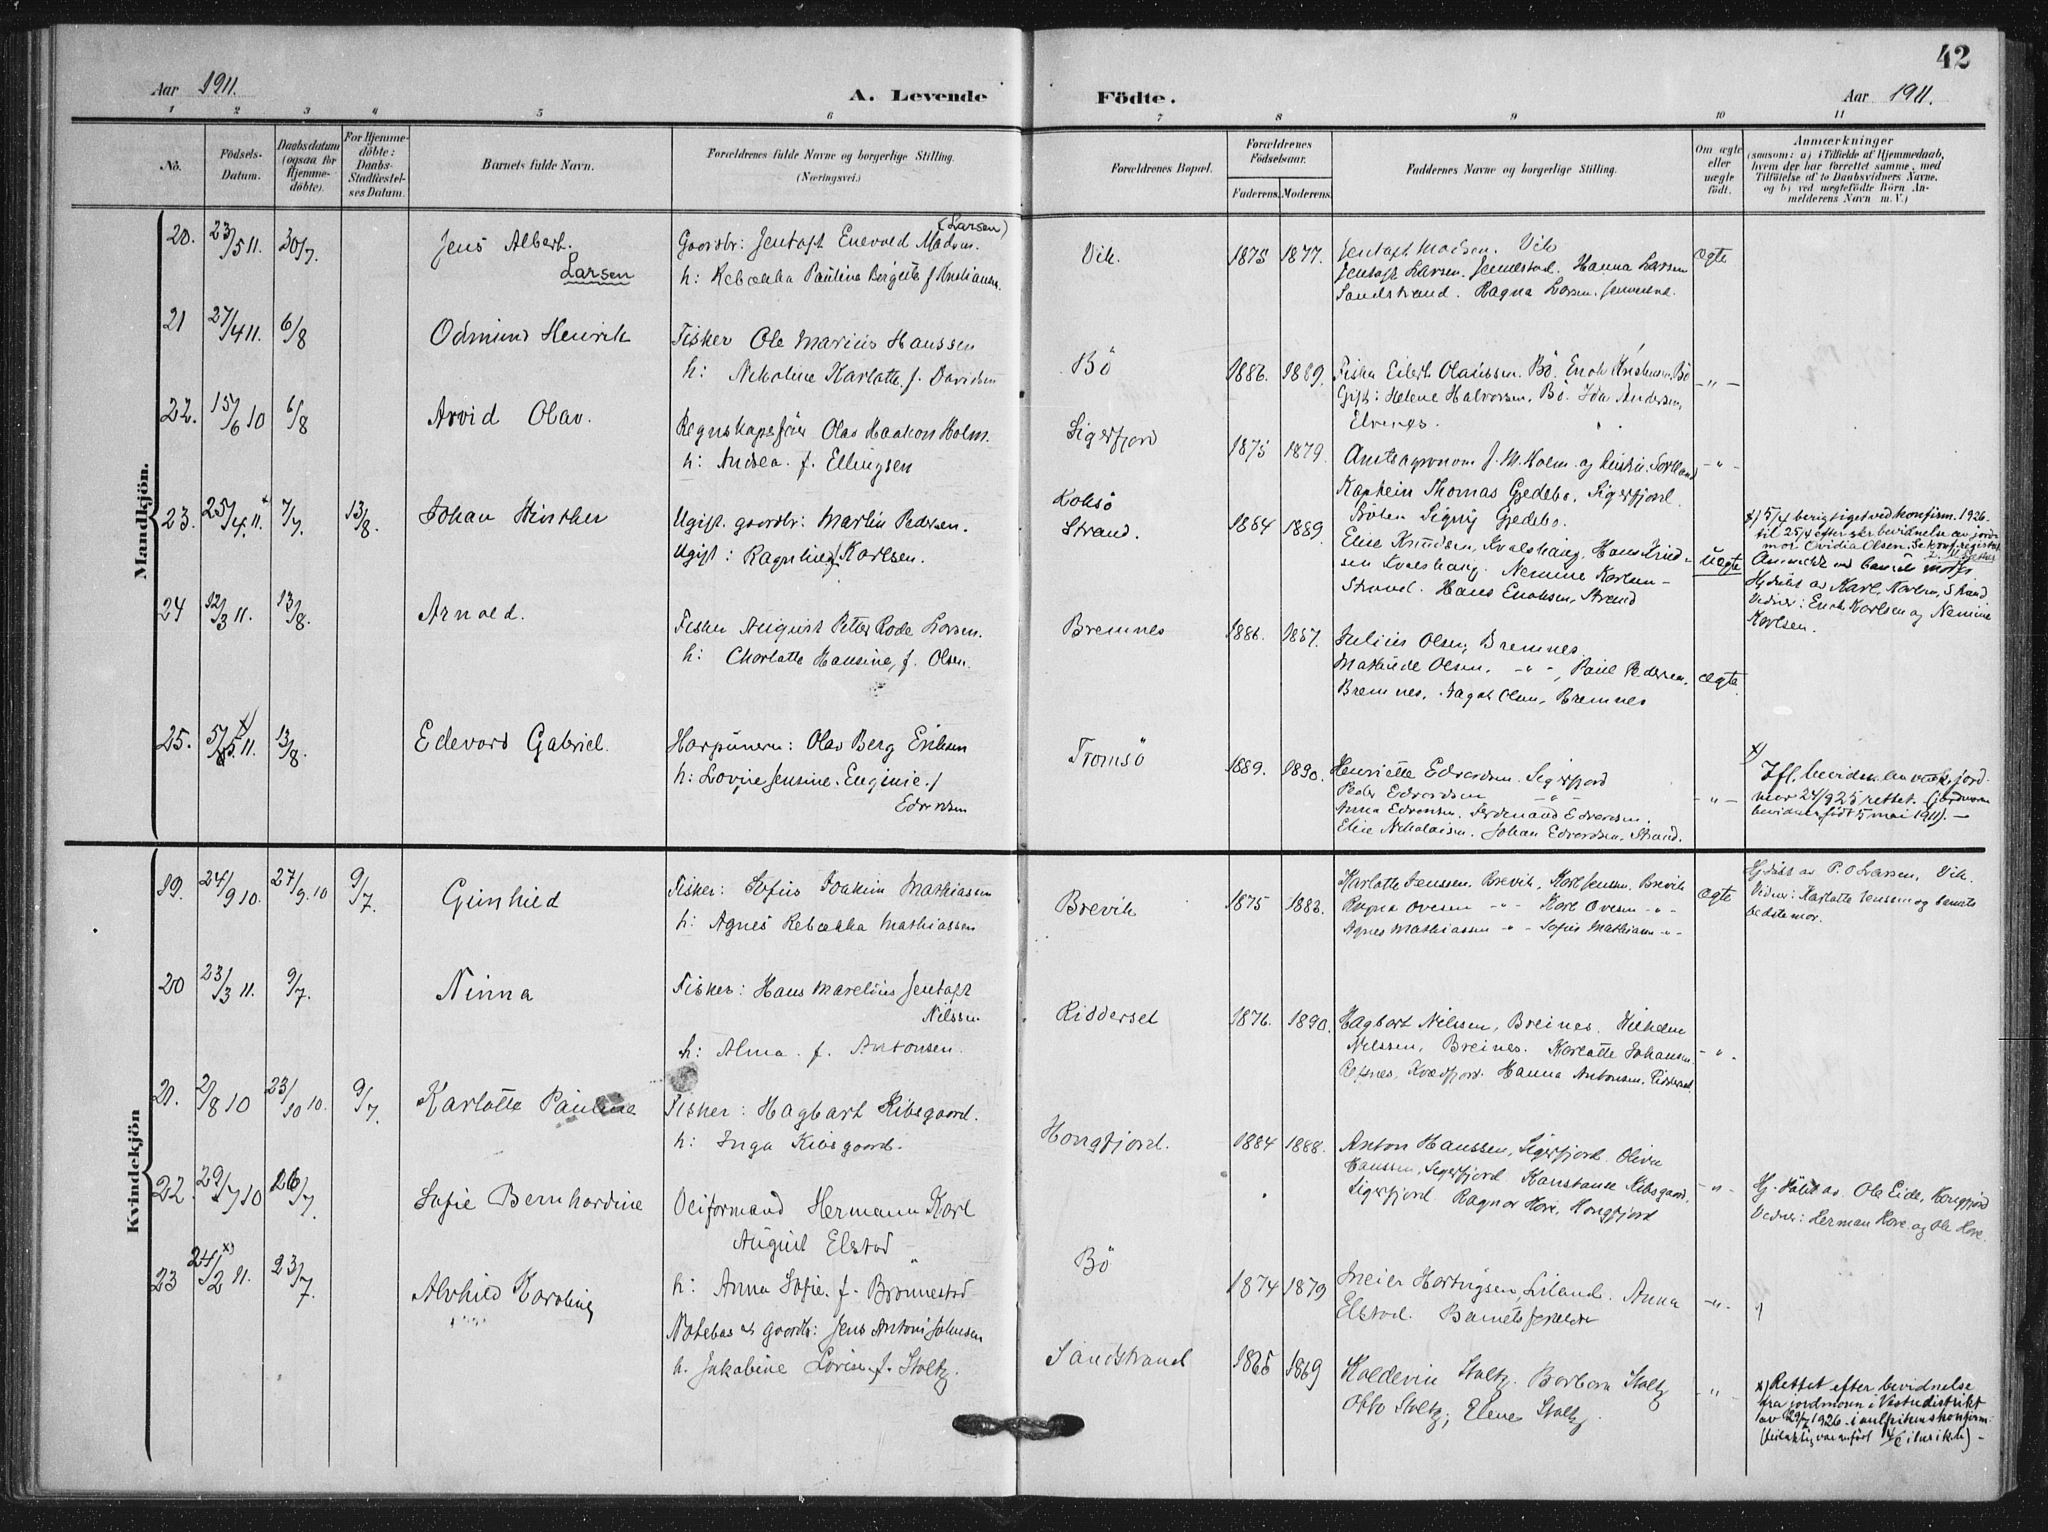 42
Aar 1911.
A. Levende
Födte.
Aar 1911.
1 2 3 4 5 6 7 8 9 10 11
No.
Födsels-
Datum.
Daabsdatum
(ogsaa for
Hjemme-
döbte).
For Hjemme-
döbte:
Daabs-
Stadfæstel-
ses Datum.
Barnets fulde Navn.
Forældrenes fulde Navne og borgerlige Stilling.
(Næringsvei.)
Forældrenes Bopæl.
Forældrenes
Födselsaar.
Faderens.
Moderens.
Faddernes Navne og borgerlige Stilling.
Om ægte
eller
uægte
födt.
Anmærkninger
(saasom: a) i Tilfælde af Hjemmedaab,
hvem der har forrettet samme, med
Tilföielse af to Daabsvidners Navne,
og b) ved uægtefödte Börn An-
melderens Navn m. V.)
Mandkjön.
20. 23/5 11. 30/7.
Jens Albert
Larsen
Gaardbr: Jentoft Enevold Madsen. (Larsen)
h: Rebækka Pauline Bergitte f. Kristiansen
Vik. 1875 1877.
Jentoft Madsen. Vik
Jentoft Larsen. Hanna Larsen
Sandstrand. Ragna Larsen.
ægte
21 27/4 11. 6/8
Odmund Henrik
Fisker Ole Marius Hanssen
h: Nikoline Karlotte f. Davidsen
Bö 1886. 1889.
Fisker Eilert Olaussen. Bö. Enok Kristensen. Bö
Gift: Helene Halvorsen, Bö. Ida Andersen,
Elvenes.
-"-
22. 15/6 10 6/8
Arvid Olav.
Regnskapsförer Olav Haakon Holm.
h: Andrea f. Ellingsen
Sigerfjord 1875 1879.
Amtsagronom J. M. Holm og Kristin Sortland
Kaptein Thomas Gjedebo, Sigerfjord.
Fröken Signy Gjedebo.
-"-
23. 25/4 11. x 7/7. 13/8.
Johan Günther
Ugift gaardbr: Martin Pedersen.
Ugift: Ragnhild Karlsen.
Koksö
Strand. 1864 1889.
Elise Knudsen, Kvalshaug, Hans Knud-
sen Kvalshaug. Nemine Karlsen
Strand. Hans Enoksen, Strand
uægte
x) 5/4 berigtiget ved konfirm. 1926
til 25/4 efter skr. bevidnelse av jord-
mor Ovidia Olsen. Se konf. register
Anmeldt ved barnets morfar
Hj.döbt av Karl Karlsen, Strand
Vidner: Enok Karlsen og Nemine
Karlsen.
24 12/3 11. 13/8.
Arnold.
Fisker August Peter Rode Larsen.
h: Charlotte Hansine, f. Olsen.
Bremnes 1886. 1887.
Julius Olsen, Bremnes
Mathilde Olsen, -"-, Paul Pedersen,
Bremnes, Olsen, Bremnes
ægte.
25. 5/5 11. x) 13/8.
Edevard Gabriel.
Harpuner: Olav Berg Eriksen
h: Lovise Jensine Euginie f.
Edvardsen
Tromsö 1889. 1890.
Henriette Edvardsen. Sigerfjord
Peder Edvardsen -"-
Anna Edvardsen. Ferdinand Edvardsen.
Elise Nikolaisen. Johan Edvardsen, Strand.
-"-
x)
Ifl. bevidnelse av jord-
mor 24/9 25 rettet. (jordmoren
bevidner född 5 mai 1911). -
Kvindekjön
19. 24/9 10. 27/9. 10 9/7.
Gunhild
Fisker: Sofus Joakim Mathiassen
h: Agnes Rebækka Mathiassen
Brevik 1875 1883.
Karlotte Jenssen. Brevik, Karl Jensen. Brevik
Ragna Ovesen -"- Karl Ovesen -"-
Agnes Mathiassen -"- Sofus Mathiassen -"-
ægte
Hj.döbt av P. O. Larsen, Vik.
Vidner: Karlotte Jensen og barnets
bedstemor.
20 23/3 11. 9/7.
Ninna
Fisker: Hans Marelius Jentoft
Nilssen
h: Alma f. Antonsen.
Ridderset 1876. 1890.
Hagbart Nilssen, Breines. Vilhelm
Nilssen, Breines. Karlotte Johansen
Refsnes, Kvædfjord. Hanna Antonsen. Ridderset
-"-
21. 2/8 10 23/10 10. 9/7.
Karlotte Pauline
Fisker: Hagbart Kibsgaard.
h: Inga Kibsgaard.
Hongfjord. 1884 1888.
Anton Hanssen, Sigerfjord. Oliva
Hanssen, Sigerfjord Konstanse Kibsgaard.
Sigerfjord Ragnar Hove, Hongfjord
-"-
Hj. döbt av Ole Eide, Hongfjord
Vidner: Herman Hove og Ole Hove.
22. 29/7 10 26/7.
Sofie Bernhardine
Veiformand Hermann Karl
August Elstad
h: Anna Sofie f. Brönnestad
Bö 1874 1879
Meier Hartvigsen, Liland. Anna
Elstad. Barnets forældre
-"-
23 24/2 11. x) 23/7.
Alvhild Karoline
Notebas & gaardbr: Jens Antoni Johnsen
h. Jakobine Lovise f. Stoltz.
Sandstrand 1865 1869
Koldevin Stoltz. Barbara Stoltz
Otto Stoltz, Elene Stoltz.
-"-
x) Rettet efter bevidnelse
fra jordmoren i Vestre distrikt
av 29/7 1926